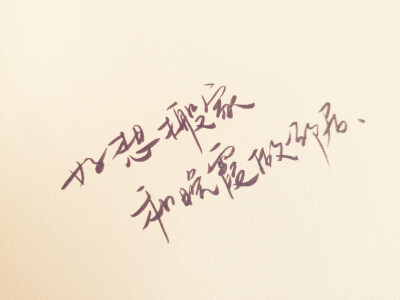 好想搬家
和晚霞做邻居、